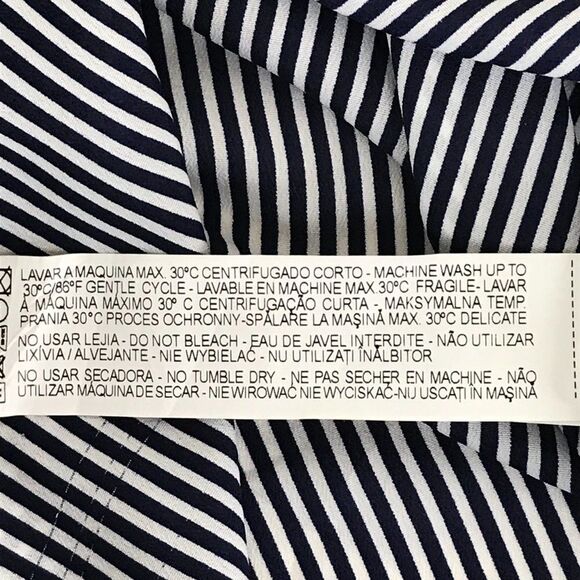 LAVAR A MAQUINA MAX. 30°C CENTRIFUGADO CORTO - MACHINE WASH UP TO
30°C/86°F GENTLE CYCLE - LAVABLE EN MACHINE MAX.30°C FRAGILE- LAVAR
Á MÁQUINA MÁXIMO 30° C CENTRIFUGAÇÃO CURTA - MAKSYMALNA TEMP.
PRANIA 30°C PROCES OCHRONNY-SPĂLARE LA MAŞINA MAX. 30°C DELICATE
NO USAR LEJIA - DO NOT BLEACH - EAU DE JAVEL INTERDITE - NÃO UTILIZAR
LIXÍVIA / ALVEJANTE - NIE WYBIELAĆ - NU UTILIZAŢI ÎNĂLBITOR
NO USAR SECADORA - NO TUMBLE DRY - NE PAS SECHER EN MACHINE - NÃO
UTILIZAR MÁQUINA DE SECAR - NIE WIROWAĆ NIE WYCISKAĆ-NU USCAŢI ÎN MAŞINĂ